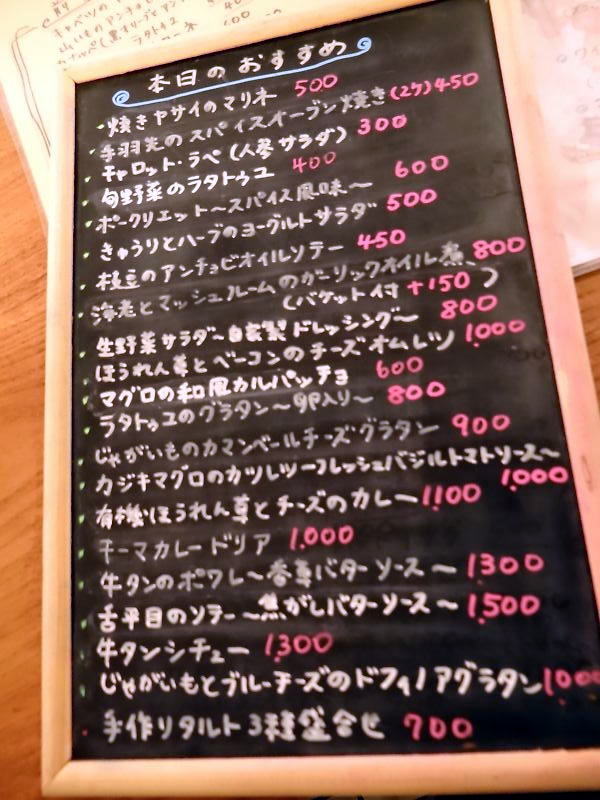 本日のおすすめ
・焼きヤサイのマリネ 500
・手羽先のスパイスオーブン焼き(2ケ)450
・キャロット・ラペ(人参サラダ) 300
・旬野菜のラタトゥユ 400
・ポークリエット〜スパイス風味〜 600
・きゅうりとハーブのヨーグルトサラダ 500
・枝豆のアンチョビオイルソテー 450
・海老とマッシュルームのガーリックオイル煮 800
(バゲット付 +150)
・生野菜サラダ〜自家製ドレッシング〜 800
・ほうれん草とベーコンのチーズオムレツ 1,000
・マグロの和風カルパッチョ 600
・ラタトゥユのグラタン〜卵入り〜 800
・じゃがいものカマンベールチーズグラタン 900
・カジキマグロのカツレツ〜フレッシュバジルトマトソース〜
1,000
・有機ほうれん草とチーズのカレー 1,100
・チーマカレードリア 1,000
・牛タンのポワレ〜香草バターソース〜 1,300
・舌平目のソテー〜焦がしバターソース〜 1,500
・牛タンシチュー 1,300
・じゃがいもとブルーチーズのドフィノアグラタン 1,000
・手作りタルト3種盛合せ 700